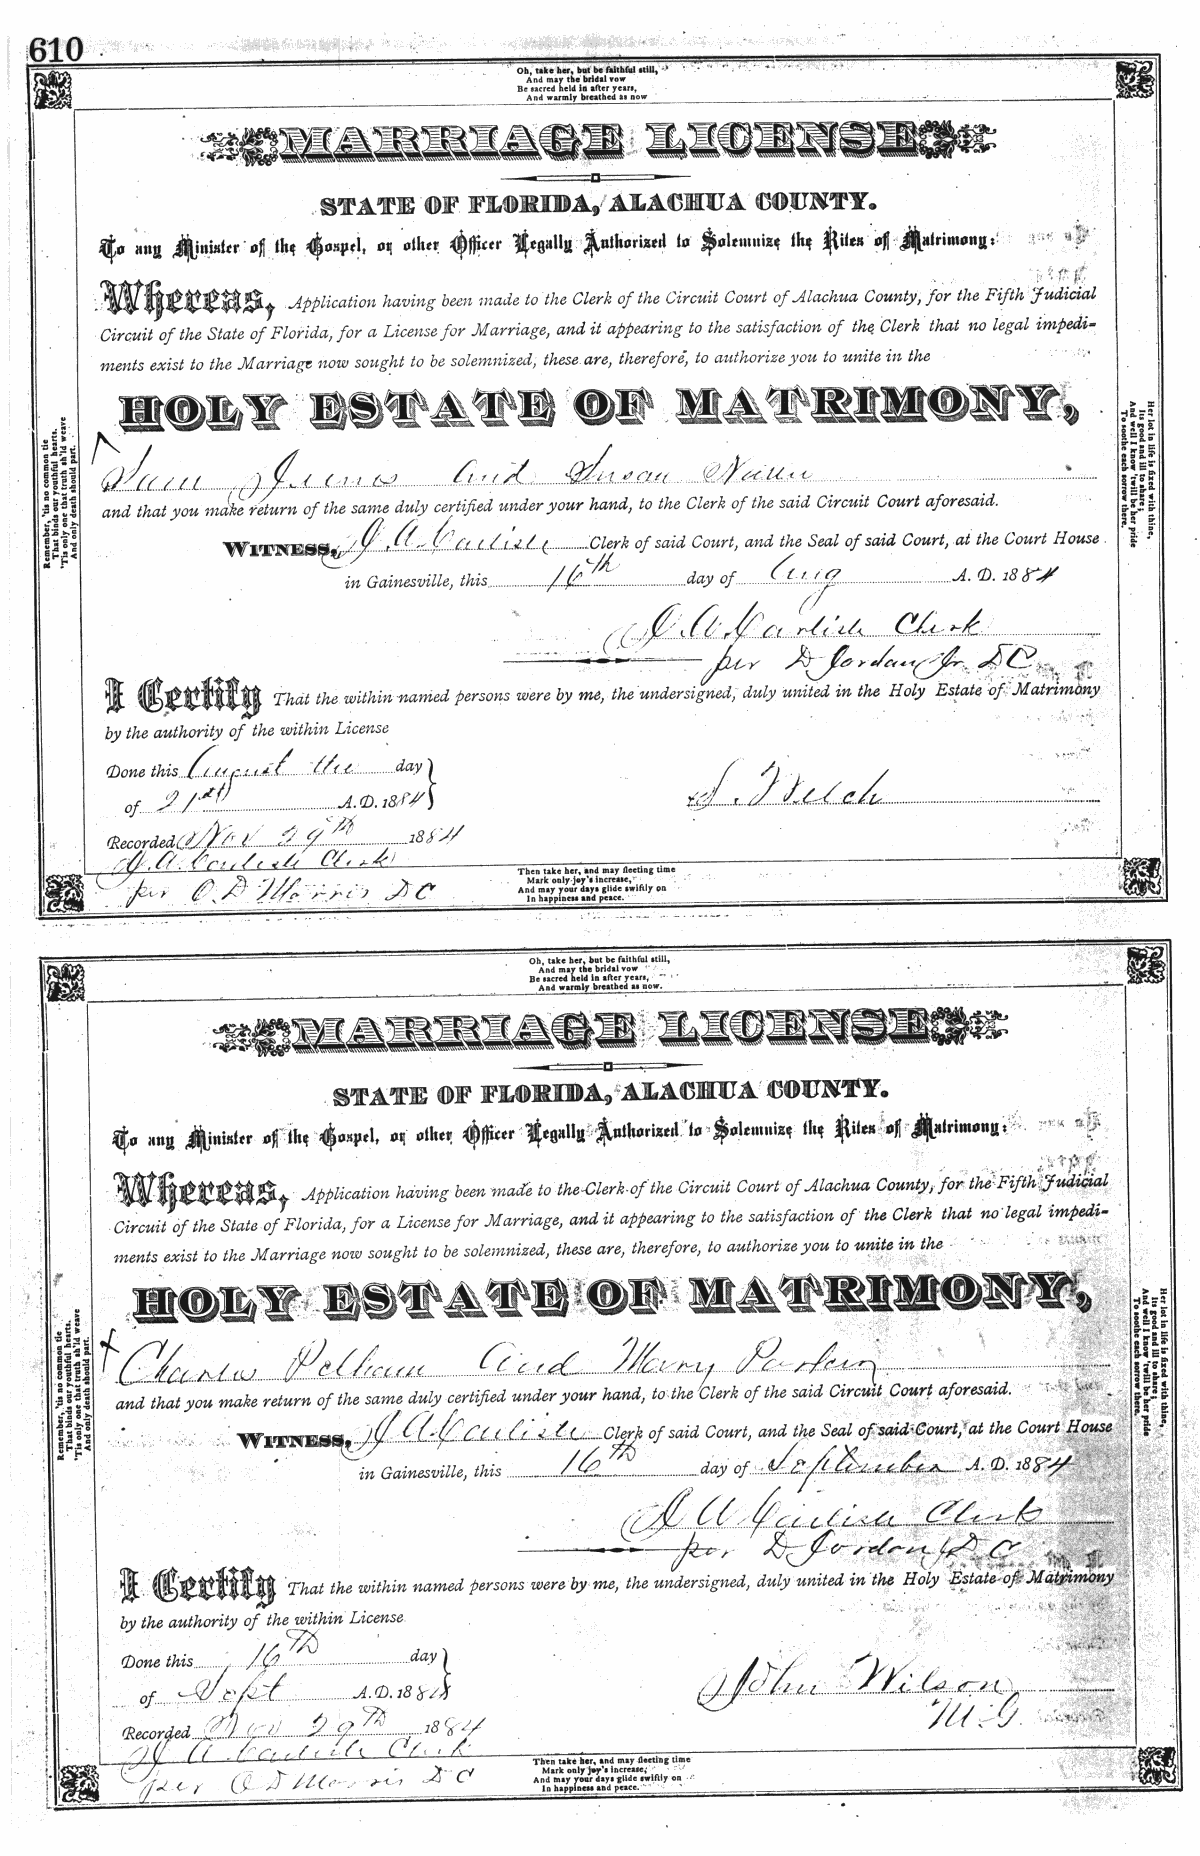 610
Oh, take her, but be faithful still,
And may the bridal vow
Be sacred held in after years,
And warmly breathed as now
MARRIAGE LICENSE
STATE OF FLORIDA, ALACHUA COUNTY.
To any Minister of the Gospel, or other Officer Legally Authorized to Solemnize the Rites of Matrimony:
Whereas, Application having been made to the Clerk of the Circuit Court of Alachua County, for the Fifth Judicial
Circuit of the State of Florida, for a License for Marriage, and it appearing to the satisfaction of the Clerk that no legal impedi-
ments exist to the Marriage now sought to be solemnized, these are, therefore, to authorize you to unite in the
HOLY ESTATE OF MATRIMONY,
Sam and Susan
and that you make return of the same duly certified under your hand, to the Clerk of the said Circuit Court aforesaid.
WITNESS, J. A. Carlisle Clerk of said Court, and the Seal of said Court, at the Court House
in Gainesville, this 16th day of Aug A. D. 1884
J. A. Carlisle Clerk
per D Jordan Jr DC
I Certify That the within named persons were by me, the undersigned, duly united in the Holy Estate of Matrimony
by the authority of the within License
Done this August the day
of 21st A.D. 1884
S. Welch
Recorded Nov 29th 1884
J. A. Carlisle Clerk
per O. D Morris DC
Remember, 'tis no common tie
That binds our youthful hearts.
'Tis only one that truth sh'ld weave
And only death should part.
Her lot in life is fixed with thine,
Its good and ill to share;
And well I know 'twill be her pride
To soothe each sorrow there.
Then take her, and may fleeting time
Mark only joy's increase,
And may your days glide swiftly on
In happiness and peace.
Oh, take her, but be faithful still,
And may the bridal vow
Be sacred held in after years,
And warmly breathed as now.
MARRIAGE LICENSE
STATE OF FLORIDA, ALACHUA COUNTY.
To any Minister of the Gospel, or other Officer Legally Authorized to Solemnize the Rites of Matrimony:
Whereas, Application having been made to the Clerk of the Circuit Court of Alachua County, for the Fifth Judicial
Circuit of the State of Florida, for a License for Marriage, and it appearing to the satisfaction of the Clerk that no legal impedi-
ments exist to the Marriage now sought to be solemnized, these are, therefore, to authorize you to unite in the
HOLY ESTATE OF MATRIMONY,
Charles Pelham and Mary
and that you make return of the same duly certified under your hand, to the Clerk of the said Circuit Court aforesaid.
WITNESS, J A Carlisle Clerk of said Court, and the Seal of said Court, at the Court House
in Gainesville, this 16th day of September A. D. 1884
J A Carlisle Clerk
per D Jordan Jr D C
I Certify That the within named persons were by me, the undersigned, duly united in the Holy Estate of Matrimony
by the authority of the within License
Done this 16th day
of Sept A.D. 1884
John Wilson
M.G.
Recorded Nov 29th 1884
J A Carlisle Clerk
per O D Morris D C
Remember, 'tis no common tie
That binds our youthful hearts.
'Tis only one that truth sh'ld weave
And only death should part.
Her lot in life is fixed with thine,
Its good and ill to share;
And well I know 'twill be her pride
To soothe each sorrow there.
Then take her, and may fleeting time
Mark only joy's increase;
And may your days glide swiftly on
In happiness and peace.